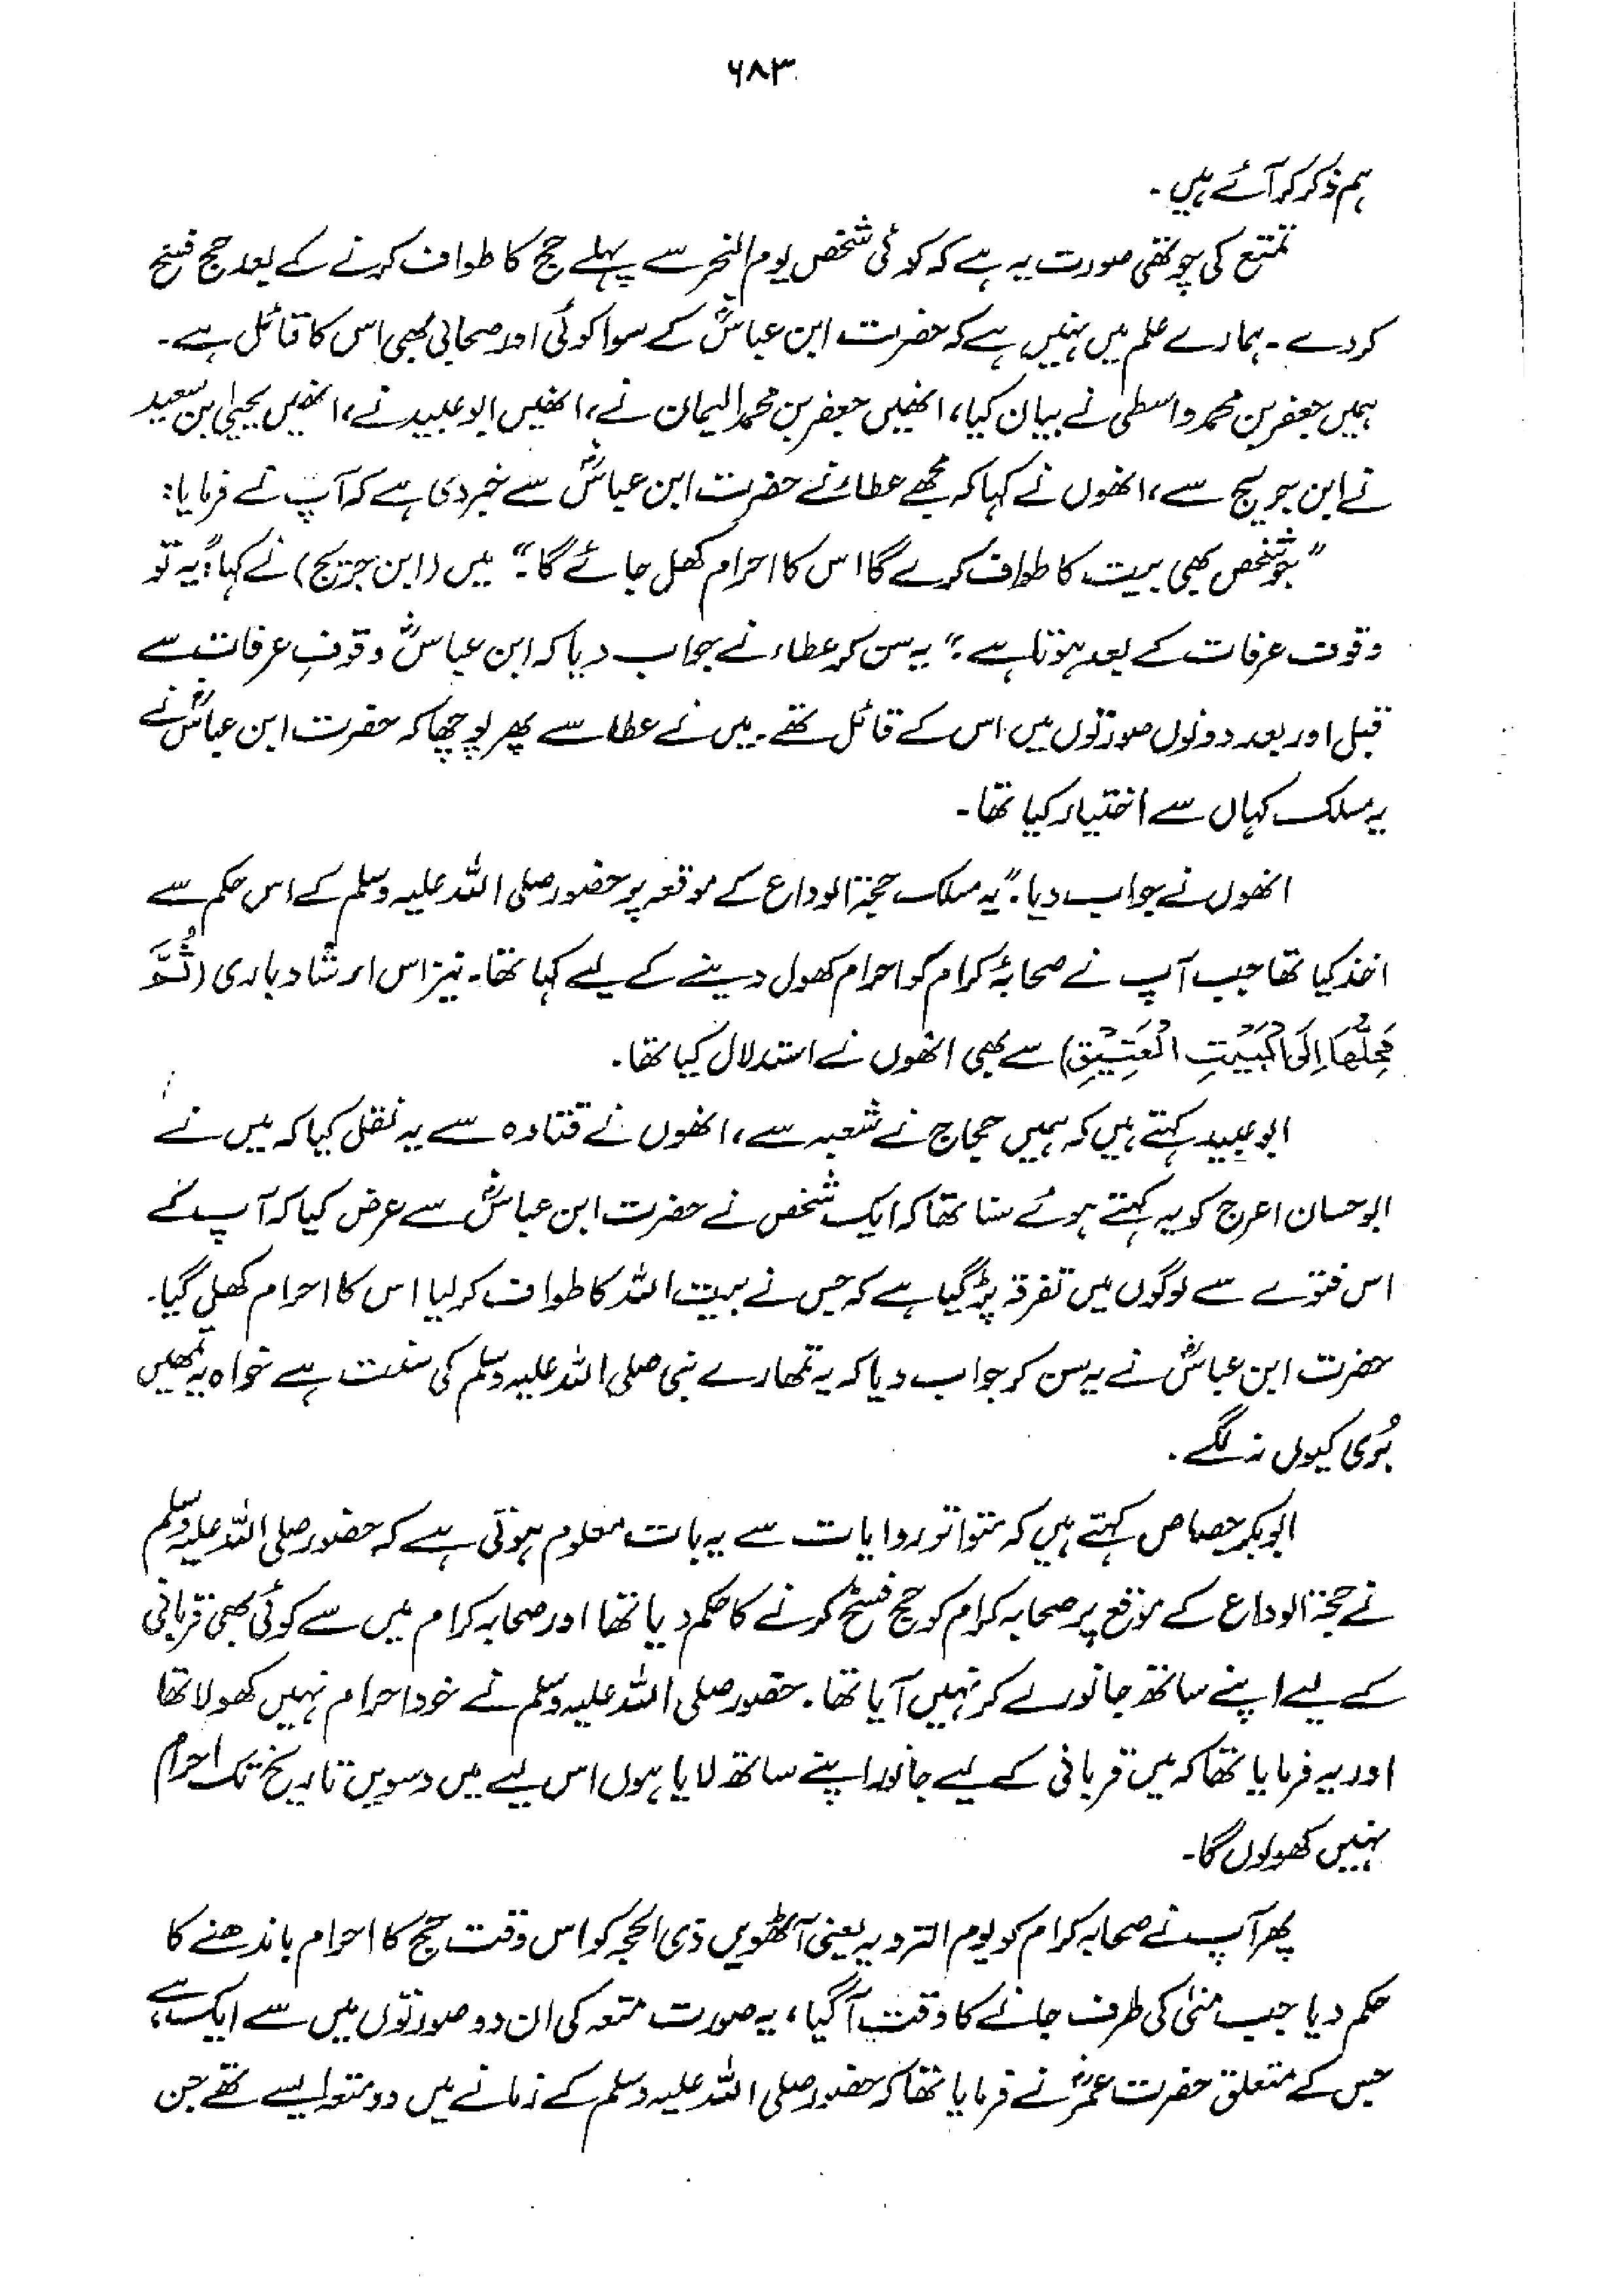 ۶۸۳
ہم ذکر کر آئے ہیں۔
تمتع کی چوتھی صورت یہ ہے کہ کوئی شخص یوم النحر سے پہلے حج کا طواف کرنے کے بعد حج فسخ
کردے۔ ہمارے علم میں نہیں ہے کہ حضرت ابن عباسؓ کے سوا کوئی اور صحابی بھی اس کا قائل ہے۔
ہمیں جعفر بن محمد واسطی نے بیان کیا، انھیں جعفر بن محمد الیمان نے، انھیں ابو عبید نے، انھیں یحییٰ ابن سعید
نے ابن جریج سے، انھوں نے کہا کہ مجھے عطاء نے حضرت ابن عباسؓ سے خبر دی ہے کہ آپ نے فرمایا:
”جو شخص بھی بیت کا طواف کرے گا اس کا احرام کھل جائے گا۔“ میں (ابن جریج) نے کہا: ”یہ تو
وقوف عرفات کے بعد ہوتا ہے۔“ یہ سن کر عطاء نے جواب دیا کہ ابن عباسؓ وقوفِ عرفات سے
قبل اور بعد دونوں صورتوں میں اس کے قائل تھے۔ میں نے عطا سے پھر پوچھا کہ حضرت ابن عباسؓ نے
یہ مسلک کہاں سے اختیار کیا تھا۔
انھوں نے جواب دیا۔ ”یہ مسلک حجۃ الوداع کے موقعہ پر حضور صلی اللہ علیہ وسلم کے اس حکم سے
اخذ کیا تھا جب آپ نے صحابۂ کرام کو احرام کھول دینے کے لیے کہا تھا۔ نیز اس ارشاد باری (ثُمَّ
مَحِلُّهَا إِلَى الْبَيْتِ الْعَتِيْقِ) سے بھی انھوں نے استدلال کیا تھا۔
ابو عبید کہتے ہیں کہ ہمیں حجاج نے شعبہ سے، انھوں نے قتادہ سے یہ نقل کیا کہ میں نے
ابو حسان اعرج کو یہ کہتے ہوئے سنا تھا کہ ایک شخص نے حضرت ابن عباسؓ سے عرض کیا کہ آپ کے
اس فتوے سے لوگوں میں تفرقہ پڑ گیا ہے کہ جس نے بیت اللہ کا طواف کر لیا اس کا احرام کھل گیا۔
حضرت ابن عباسؓ نے یہ سن کر جواب دیا کہ یہ تمھارے نبی صلی اللہ علیہ وسلم کی سنت ہے خواہ یہ تمھیں
بُری کیوں نہ لگے۔
ابوبکر جصاص کہتے ہیں کہ متواتر روایات سے یہ بات معلوم ہوتی ہے کہ حضور صلی اللہ علیہ وسلم
نے حجۃ الوداع کے موقع پر صحابہ کرام کو حج فسخ کرنے کا حکم دیا تھا اور صحابہ کرام میں سے کوئی بھی قربانی
کے لیے اپنے ساتھ جانور لے کر نہیں آیا تھا۔ حضور صلی اللہ علیہ وسلم نے خود احرام نہیں کھولا تھا
اور یہ فرمایا تھا کہ میں قربانی کے لیے جانور اپنے ساتھ لایا ہوں اس لیے میں دسویں تاریخ تک احرام
نہیں کھولوں گا۔
پھر آپ نے صحابہ کرام کو یوم الترویہ یعنی آٹھویں ذی الحجہ کو اس وقت حج کا احرام باندھنے کا
حکم دیا جب منیٰ کی طرف جانے کا وقت آگیا، یہ صورت متعہ کی ان دو صورتوں میں سے ایک ہے،
جس کے متعلق حضرت عمرؓ نے فرمایا تھا کہ حضور صلی اللہ علیہ وسلم کے زمانے میں دو متعہ ایسے تھے جن